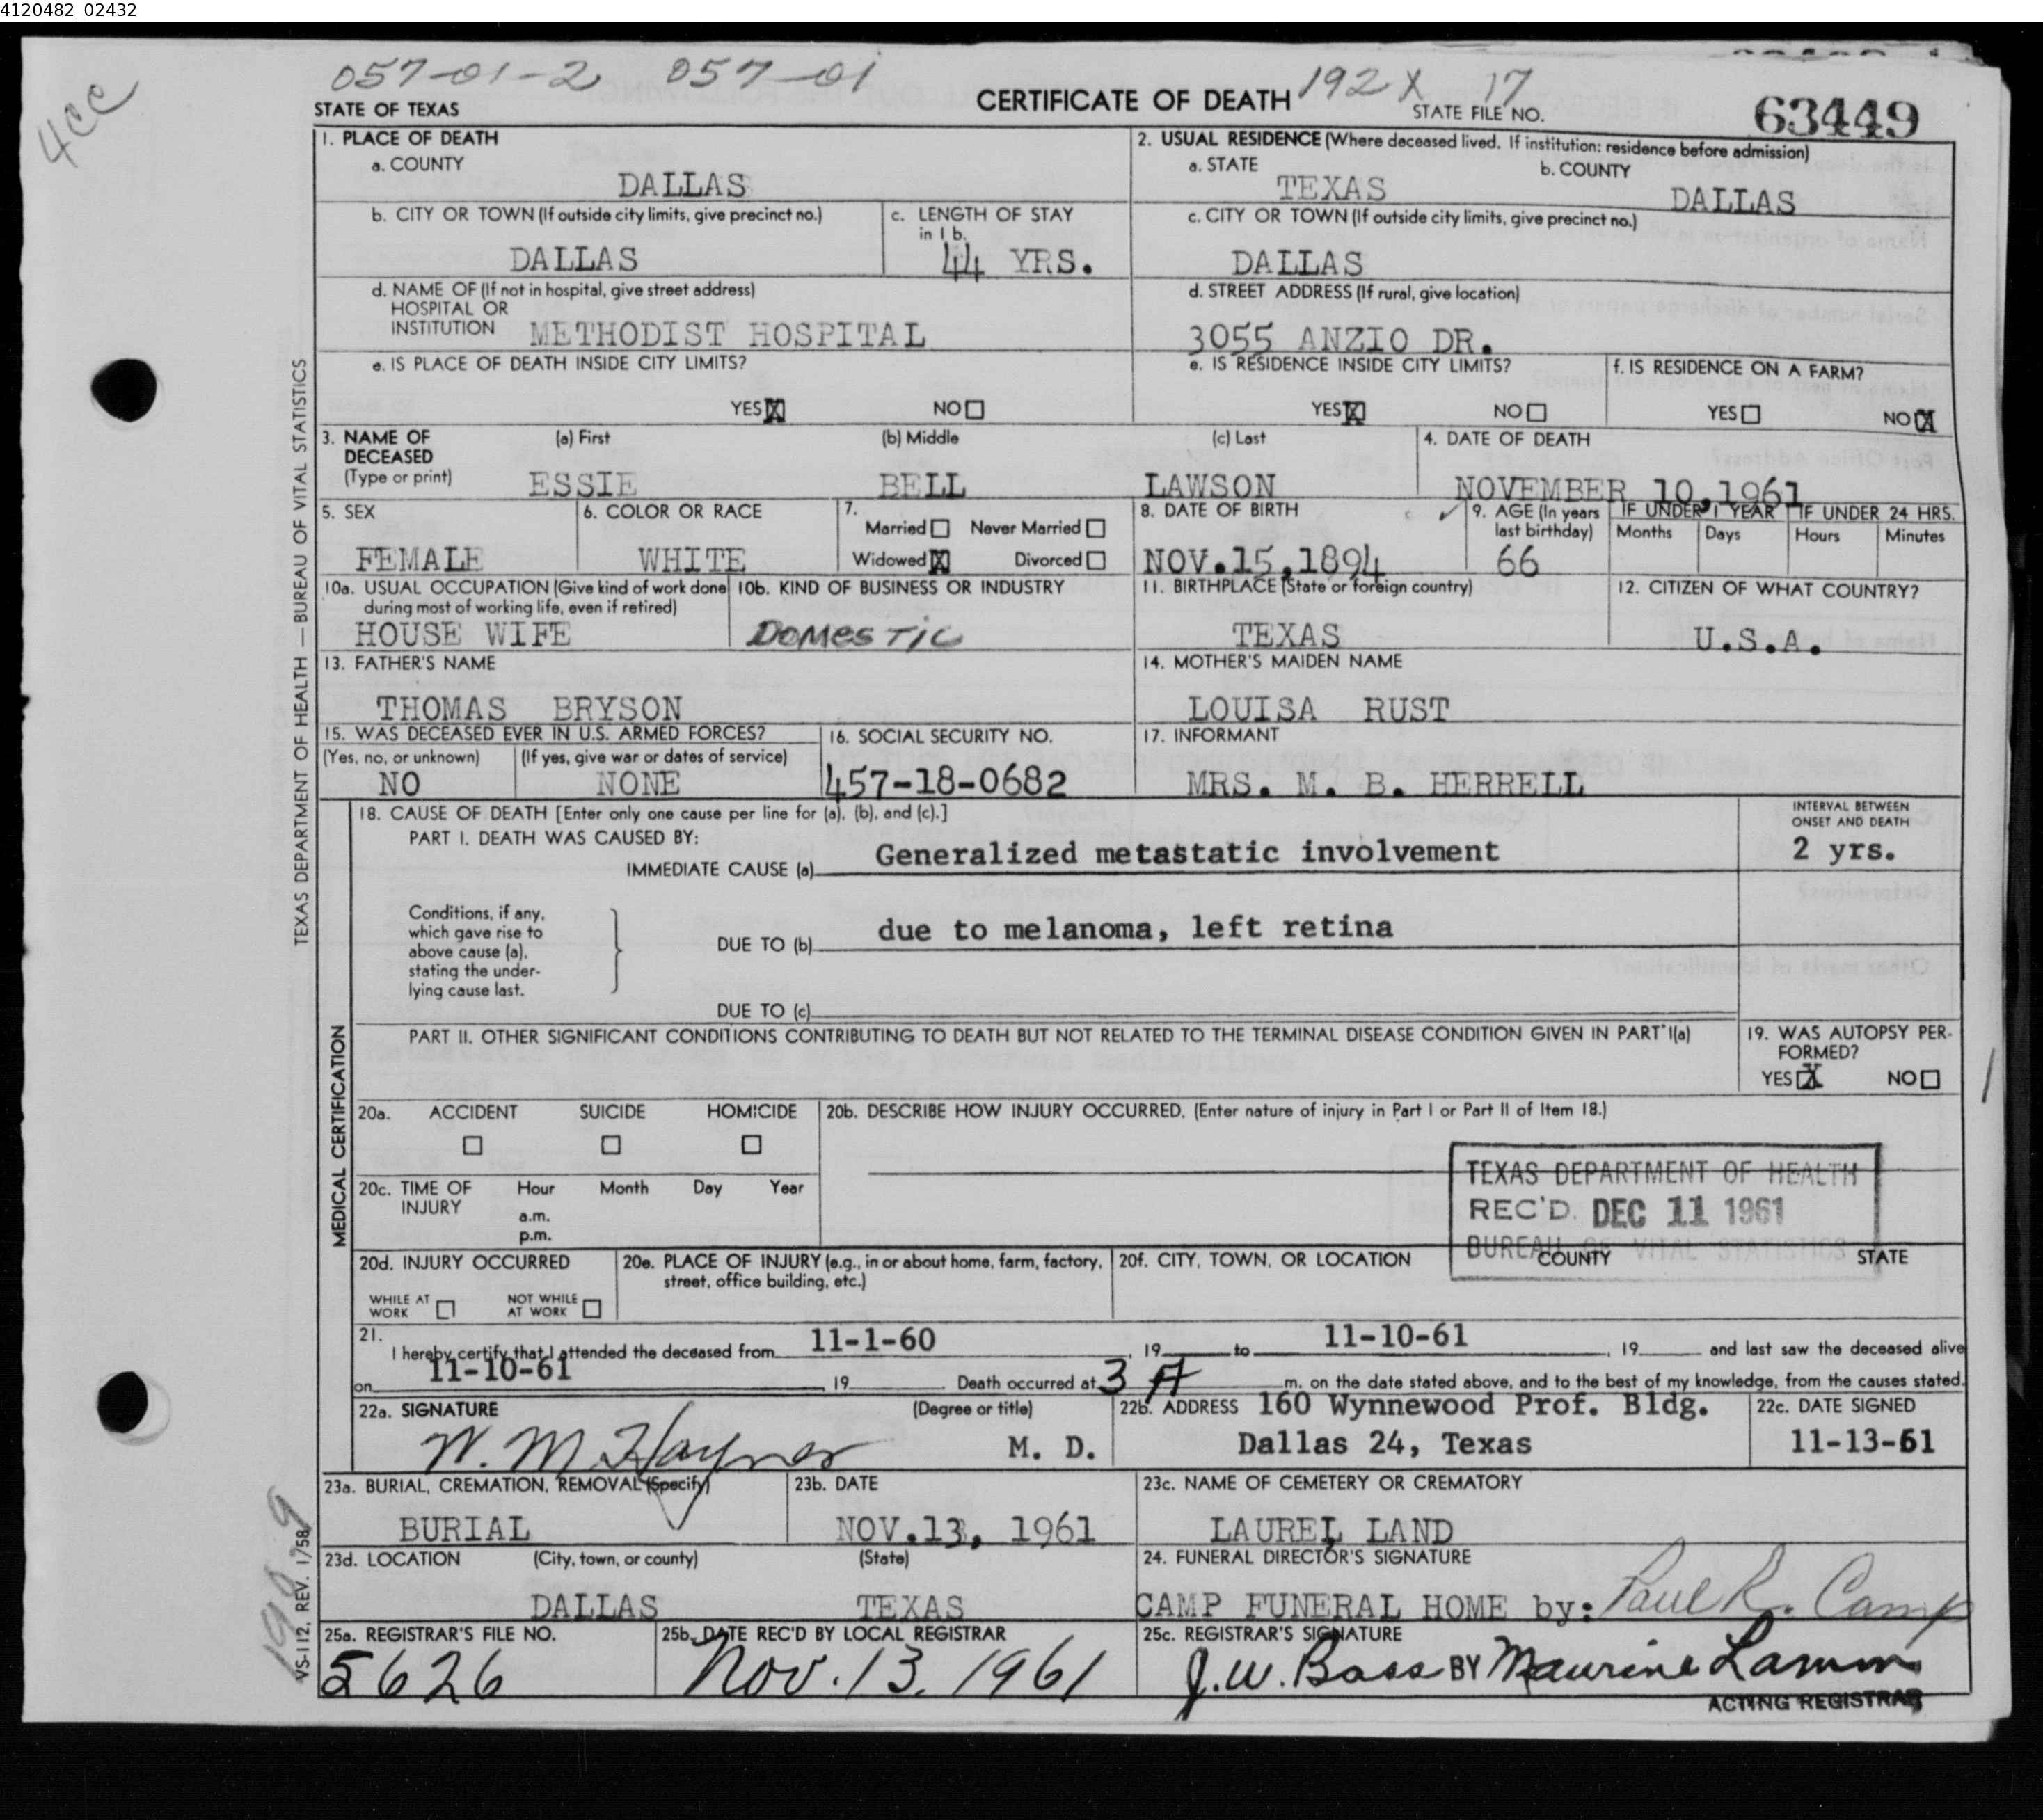 4120482_02432
4cc
057-01-2 057-01
192X 17
STATE OF TEXAS
CERTIFICATE OF DEATH
STATE FILE NO.
63449
1. PLACE OF DEATH
a. COUNTY
DALLAS
2. USUAL RESIDENCE (Where deceased lived. If institution: residence before admission)
a. STATE
TEXAS
b. COUNTY
DALLAS
b. CITY OR TOWN (If outside city limits, give precinct no.)
DALLAS
c. LENGTH OF STAY
in 1 b.
44 YRS.
c. CITY OR TOWN (If outside city limits, give precinct no.)
DALLAS
d. NAME OF (If not in hospital, give street address)
HOSPITAL OR
INSTITUTION METHODIST HOSPITAL
d. STREET ADDRESS (If rural, give location)
3055 ANZIO DR.
e. IS PLACE OF DEATH INSIDE CITY LIMITS?
YES X NO
e. IS RESIDENCE INSIDE CITY LIMITS?
YES X NO
f. IS RESIDENCE ON A FARM?
YES NO X
3. NAME OF
DECEASED
(Type or print)
(a) First
ESSIE
(b) Middle
BELL
(c) Last
LAWSON
4. DATE OF DEATH
NOVEMBER 10, 1961
5. SEX
FEMALE
6. COLOR OR RACE
WHITE
7.
Married Never Married
Widowed X Divorced
8. DATE OF BIRTH
NOV. 15, 1894
9. AGE (In years
last birthday)
66
IF UNDER 1 YEAR
Months Days
IF UNDER 24 HRS.
Hours Minutes
10a. USUAL OCCUPATION (Give kind of work done
during most of working life, even if retired)
HOUSE WIFE
10b. KIND OF BUSINESS OR INDUSTRY
DOMESTIC
11. BIRTHPLACE (State or foreign country)
TEXAS
12. CITIZEN OF WHAT COUNTRY?
U.S.A.
13. FATHER'S NAME
THOMAS BRYSON
14. MOTHER'S MAIDEN NAME
LOUISA RUST
15. WAS DECEASED EVER IN U.S. ARMED FORCES?
(Yes, no, or unknown)
NO
(If yes, give war or dates of service)
NONE
16. SOCIAL SECURITY NO.
457-18-0682
17. INFORMANT
MRS. M. B. HERRELL
18. CAUSE OF DEATH [Enter only one cause per line for (a), (b), and (c).]
PART I. DEATH WAS CAUSED BY:
IMMEDIATE CAUSE (a) Generalized metastatic involvement
INTERVAL BETWEEN
ONSET AND DEATH
2 yrs.
Conditions, if any,
which gave rise to
above cause (a),
stating the under-
lying cause last.
DUE TO (b) due to melanoma, left retina
DUE TO (c)
PART II. OTHER SIGNIFICANT CONDITIONS CONTRIBUTING TO DEATH BUT NOT RELATED TO THE TERMINAL DISEASE CONDITION GIVEN IN PART I(a)
19. WAS AUTOPSY PER-
FORMED?
YES X NO
20a. ACCIDENT SUICIDE HOMICIDE
20b. DESCRIBE HOW INJURY OCCURRED. (Enter nature of injury in Part I or Part II of Item 18.)
20c. TIME OF
INJURY
Hour Month Day Year
a.m.
p.m.
TEXAS DEPARTMENT OF HEALTH
REC'D. DEC 11 1961
BUREAU OF VITAL STATISTICS
20d. INJURY OCCURRED
WHILE AT
WORK
NOT WHILE
AT WORK
20e. PLACE OF INJURY (e.g., in or about home, farm, factory,
street, office building, etc.)
20f. CITY, TOWN, OR LOCATION COUNTY STATE
21.
I hereby certify that I attended the deceased from 11-1-60, 19 to 11-10-61, 19 and last saw the deceased alive
on 11-10-61, 19. Death occurred at 3 A m. on the date stated above, and to the best of my knowledge, from the causes stated.
22a. SIGNATURE
(Degree or title)
W. M. Haynes M. D.
22b. ADDRESS 160 Wynnewood Prof. Bldg.
Dallas 24, Texas
22c. DATE SIGNED
11-13-61
23a. BURIAL, CREMATION, REMOVAL (Specify)
BURIAL
23b. DATE
NOV. 13, 1961
23c. NAME OF CEMETERY OR CREMATORY
LAUREL LAND
23d. LOCATION (City, town, or county) (State)
DALLAS TEXAS
24. FUNERAL DIRECTOR'S SIGNATURE
CAMP FUNERAL HOME by: Paul R. Camp
25a. REGISTRAR'S FILE NO.
5626
25b. DATE REC'D BY LOCAL REGISTRAR
Nov. 13. 1961
25c. REGISTRAR'S SIGNATURE
J. W. Bass BY Maurine Lamm
ACTING REGISTRAR
TEXAS DEPARTMENT OF HEALTH — BUREAU OF VITAL STATISTICS
MEDICAL CERTIFICATION
VS-112, REV. 1/58